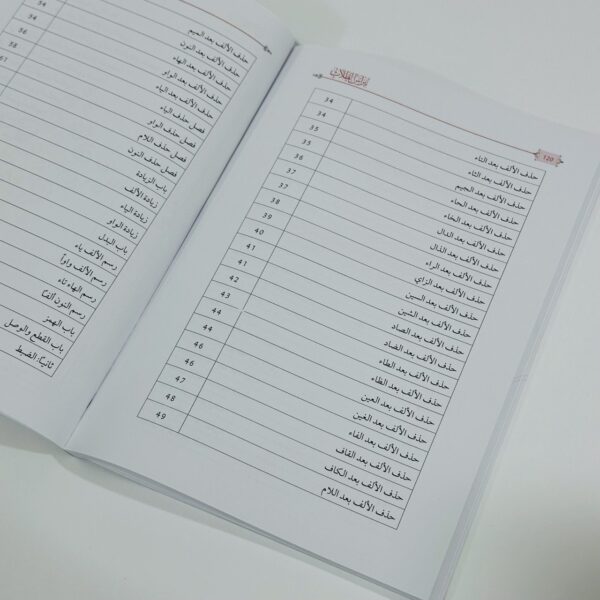 120
حذف الألف بعد التاء 34
حذف الألف بعد الثاء 34
حذف الألف بعد الجيم 35
حذف الألف بعد الحاء 35
حذف الألف بعد الخاء 36
حذف الألف بعد الدال 37
حذف الألف بعد الذال 37
حذف الألف بعد الراء 38
حذف الألف بعد الزاي 39
حذف الألف بعد السين 40
حذف الألف بعد الشين 41
حذف الألف بعد الصاد 41
حذف الألف بعد الضاد 42
حذف الألف بعد الطاء 43
حذف الألف بعد الظاء 44
حذف الألف بعد العين 44
حذف الألف بعد الغين 46
حذف الألف بعد الفاء 46
حذف الألف بعد القاف 47
حذف الألف بعد الكاف 48
حذف الألف بعد اللام 49
حذف الألف بعد الميم
حذف الألف بعد النون
حذف الألف بعد الهاء
حذف الألف بعد الواو
حذف الألف بعد الياء
فصل حذف الياء
فصل حذف الواو
فصل حذف اللام
فصل حذف النون
باب الزيادة
زيادة الألف
زيادة الياء
زيادة الواو
باب البدل
رسم الألف ياء
رسم الألف واواً
رسم الهاء تاء
رسم النون ألفًا
باب الهمز
باب القطع والوصل
ثانيًا: الضبط